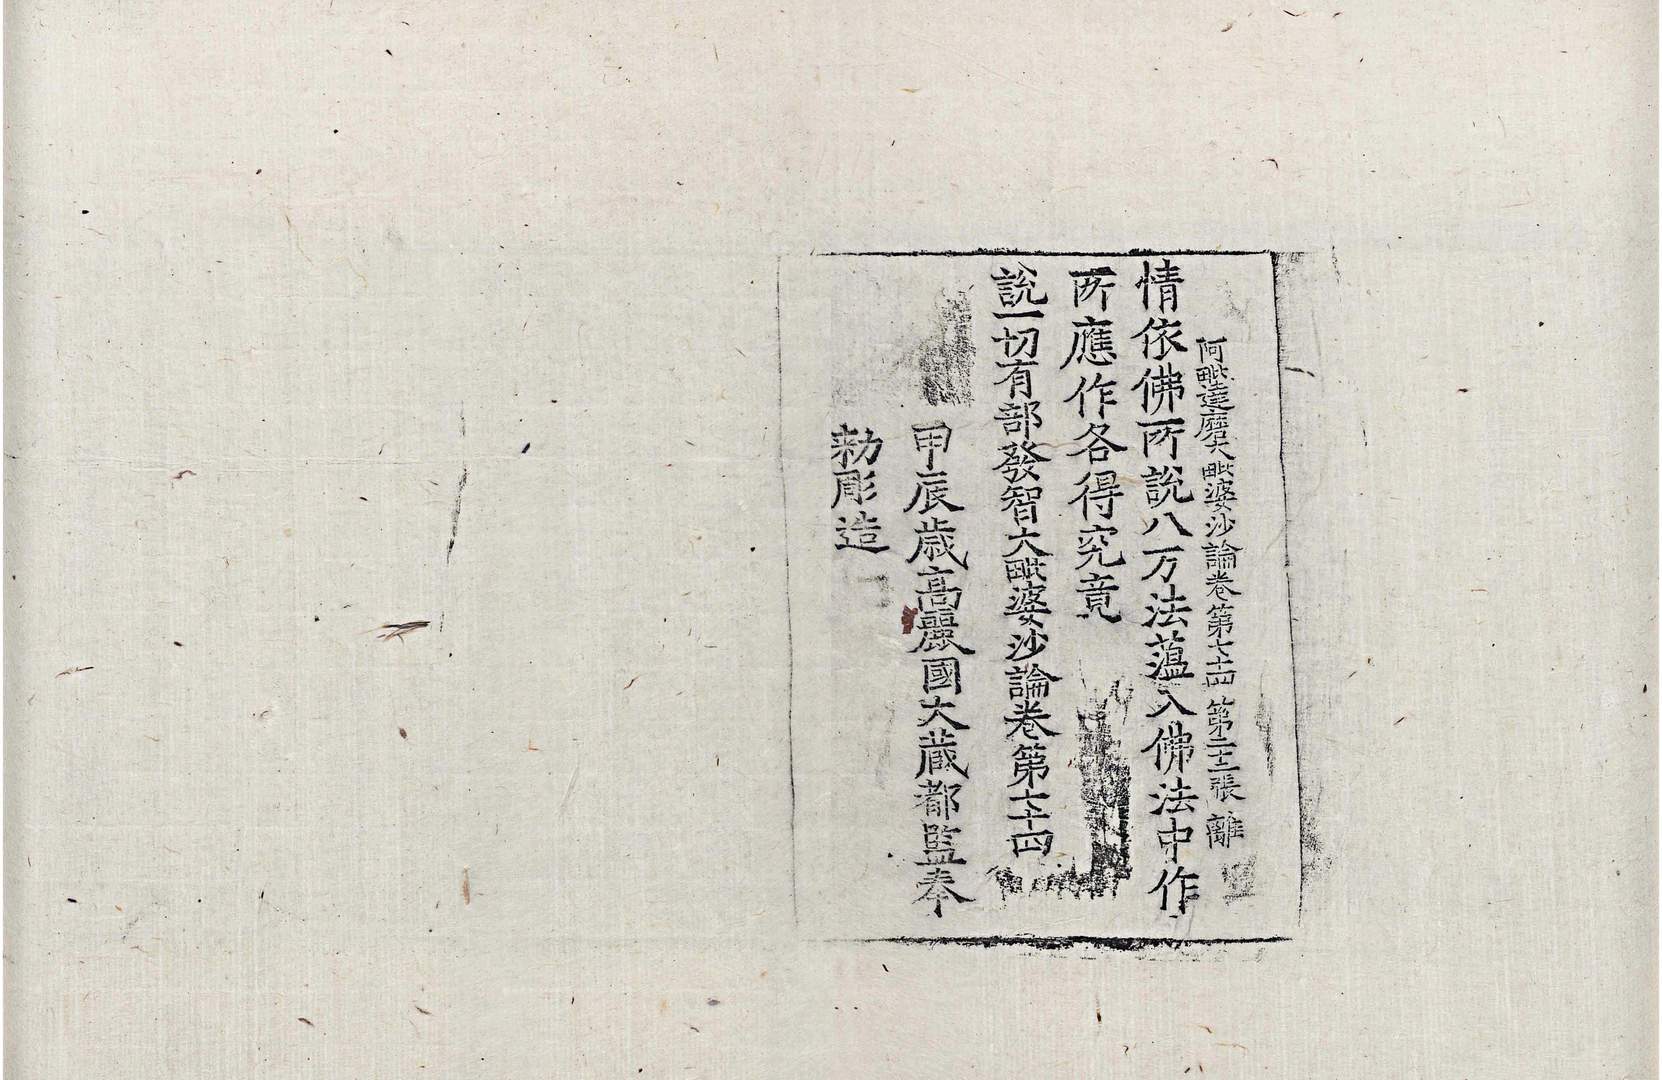 阿毗達磨大毗婆沙論卷第七十四 第二十三張 離
情依佛所說八万法蘊入佛法中作
所應作各得究竟
說一切有部發智大毗婆沙論卷第七十四
甲辰歲高麗國大藏都監奉
勑彫造